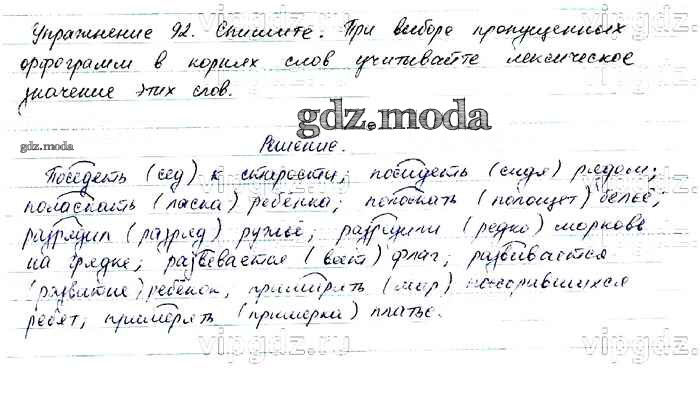 Упражнение 92. Спишите. При выборе пропущенных
орфограмм в корнях слов учитывайте лексическое
значение этих слов.
gdz.moda
gdz.moda
Решение.
Поседеть (сед) к старости; посидеть (сидя) рядом;
поласкать (ласка) ребёнка; полоскать (полощет) бельё;
разрядил (разряд) ружьё; разредили (редко) морковь
на грядке; развевается (веет) флаг; развивается
(развитие) ребёнок, примирять (мир) поссорившихся
ребят; примерять (примерка) платье.
vipgdz.ru